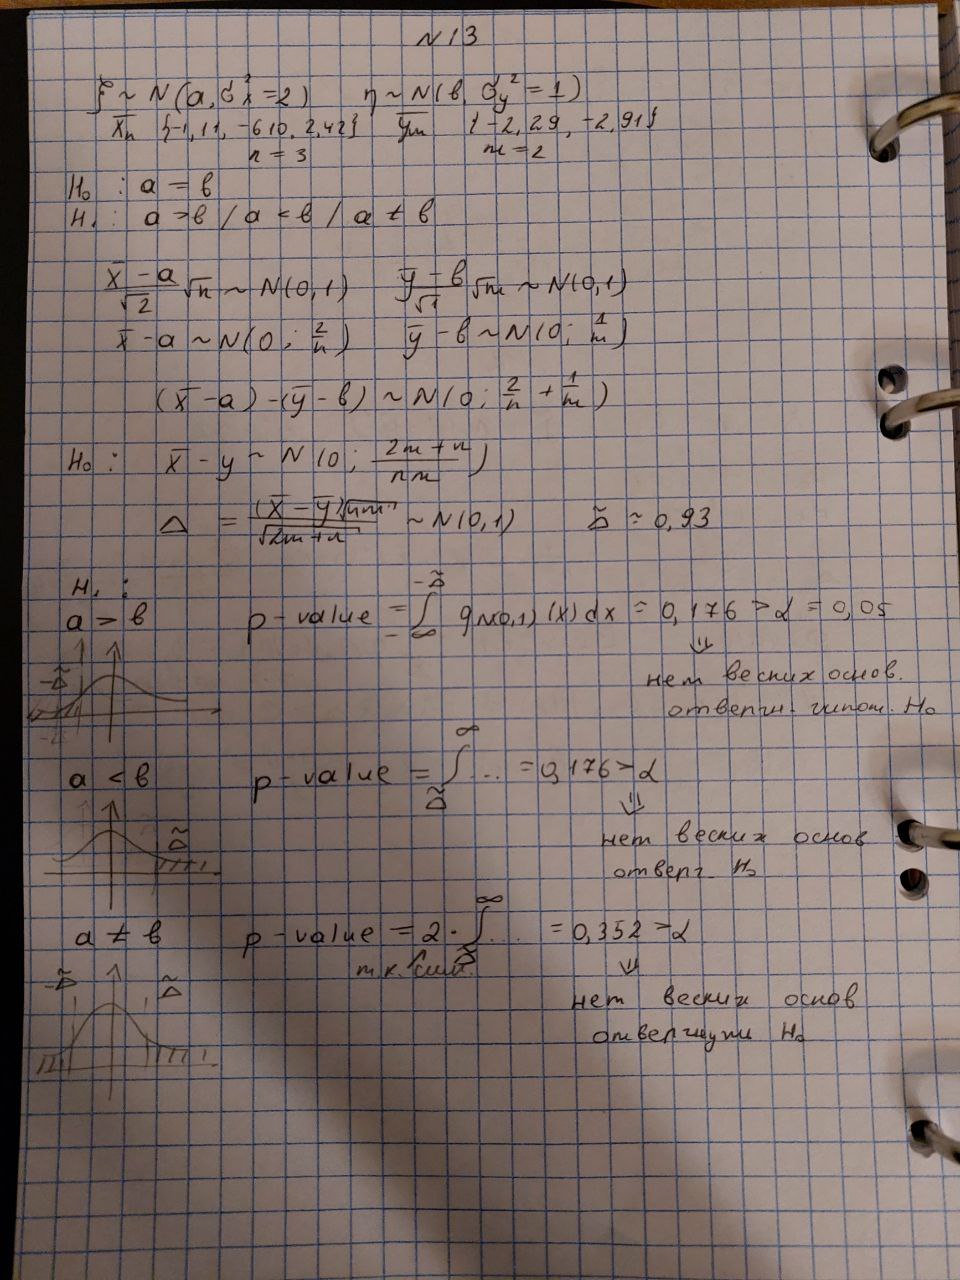 N 13
ξ ~ N(a, σ²x = 2) η ~ N(b, σ²y = 1)
x̄n {-1,11, -6,10, 2,42} ȳm {-2,29, -2,91}
n = 3 m = 2
H₀ : a = b
H₁ : a > b / a < b / a ≠ b
(x̄ - a)/√2 √n ~ N(0,1) (ȳ - b)/√1 √m ~ N(0,1)
x̄ - a ~ N(0; 2/n) ȳ - b ~ N(0; 1/m)
(x̄ - a) - (ȳ - b) ~ N(0; 2/n + 1/m)
H₀ : x̄ - y ~ N(0; (2m + n)/(nm))
Δ = (x̄ - ȳ)√(nm)/√(2m + n) ~ N(0,1) Δ̃ ≈ 0,93
H₁ :
a > b p-value = ∫_{-∞}^{-Δ̃} q_{N(0,1)}(x) dx = 0,176 > α = 0,05
-Δ̃
⇓
нет веских основ.
отвергн. гипот. H₀
a < b p-value = ∫_{Δ̃}^{∞} ... = 0,176 > α
Δ̃
⇓
нет веских основ
отверг. H₀
a ≠ b p-value = 2 · ∫_{Δ̃}^{∞} ... = 0,352 > α
т.к. сим.
-Δ̃ Δ̃
⇓
нет веских основ
отвергнуть H₀